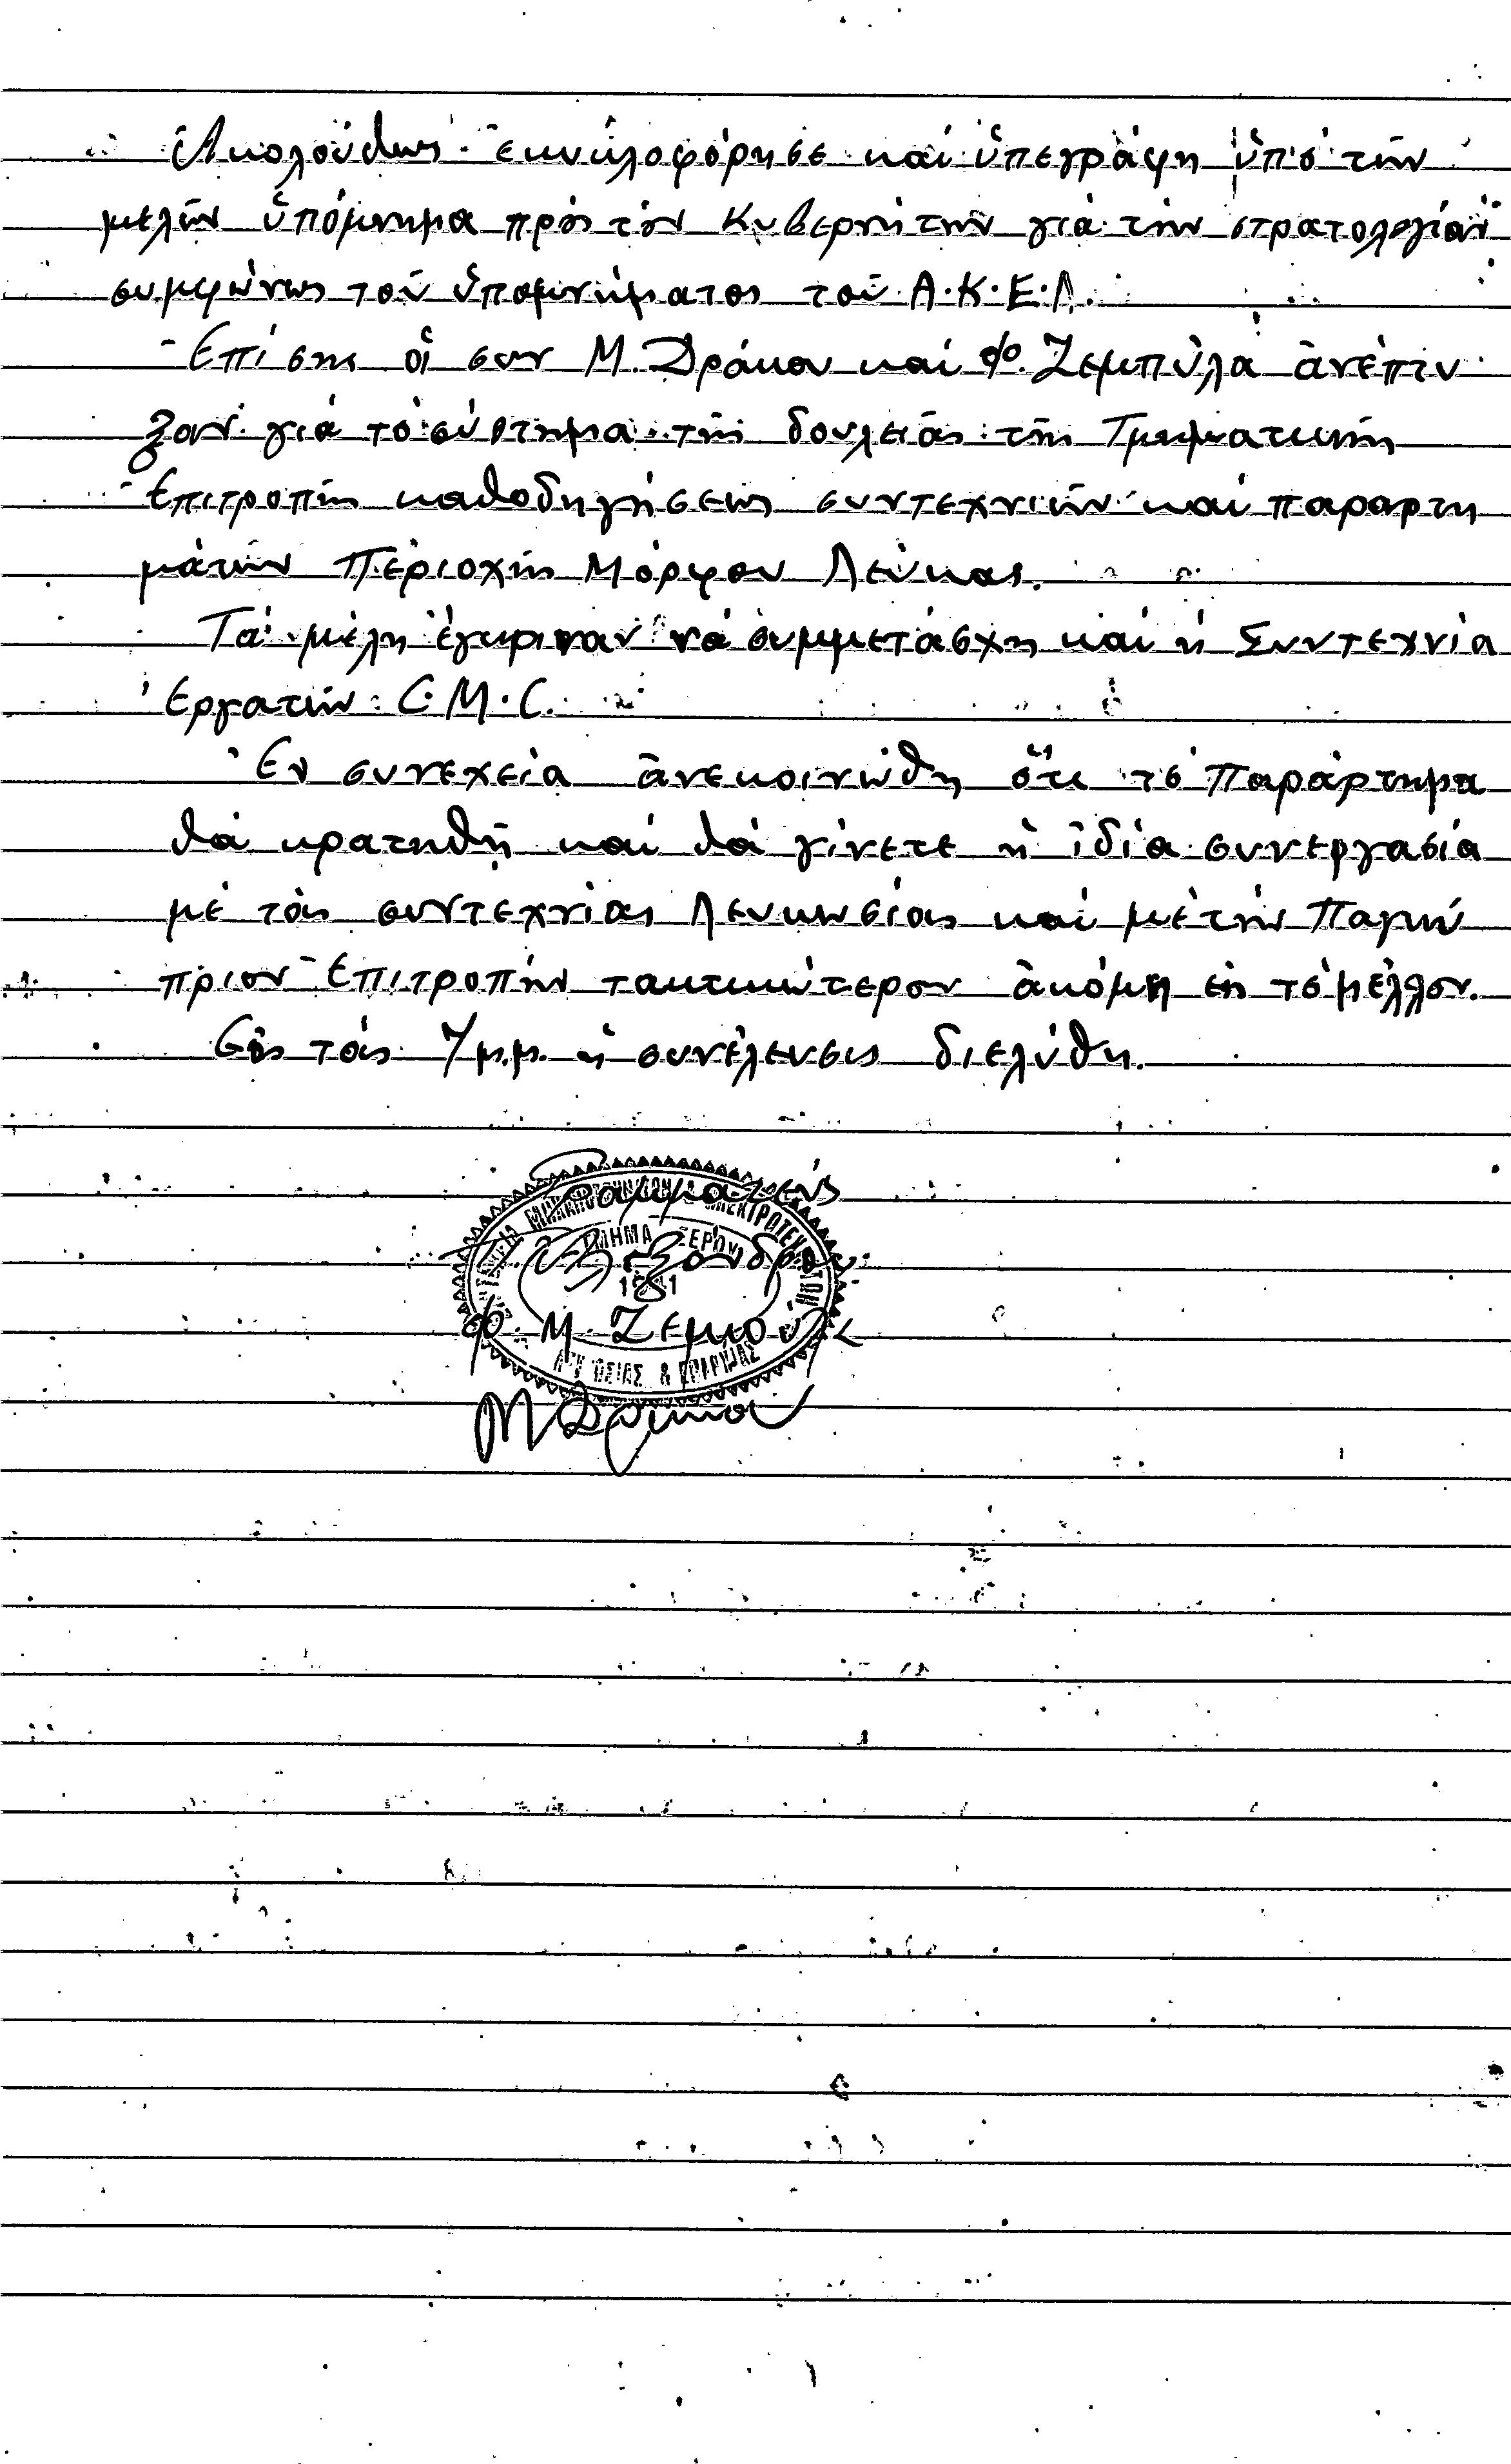 Ἀκολούθως ἐκυκλοφόρησε καί ὑπεγράφη ὑπό τῶν
μελῶν ὑπόμνημα πρός τόν Κυβερνήτην γιά τήν στρατολογίαν
συμφώνως τοῦ ὑπομνήματος τοῦ Α.Κ.Ε.Λ.
Ἐπίσης οἱ συν Μ. Δράκου καί Φ. Ζεμπύλα ἀνέπτυ
ξαν γιά τό σύστημα τῆς δουλειᾶς τῆς Τμηματικῆς
Ἐπιτροπῆς καθοδηγήσεως συντεχνιῶν καί παραρτη
μάτων Περιοχῆς Μόρφου Λεύκας.
Τά μέλη ἐγκριναν νά συμμετάσχη καί ἡ Συντεχνία
Ἐργατῶν C.M.C.
Ἐν συνεχεία ἀνεκοινώθη ὅτι τό Παράρτημα
θά κρατηθῆ καί θά γίνετε ἡ ἰδία συνεργασία
μέ τάς συντεχνίας Λευκωσίας καί μέ τήν Παγκύ
πριον Ἐπιτροπήν τακτικώτερον ἀκόμη εἰς τό μέλλον.
Εἰς τάς 7 μ.μ. ἡ συνέλευσις διελύθη.
Γραμματεύς
ΤΜΗΜΑ ΞΕΡΟΥ
Π. Ἀλεξάνδρου
1941
Φ. Μ. Ζεμπύλας
Μ Δράκου